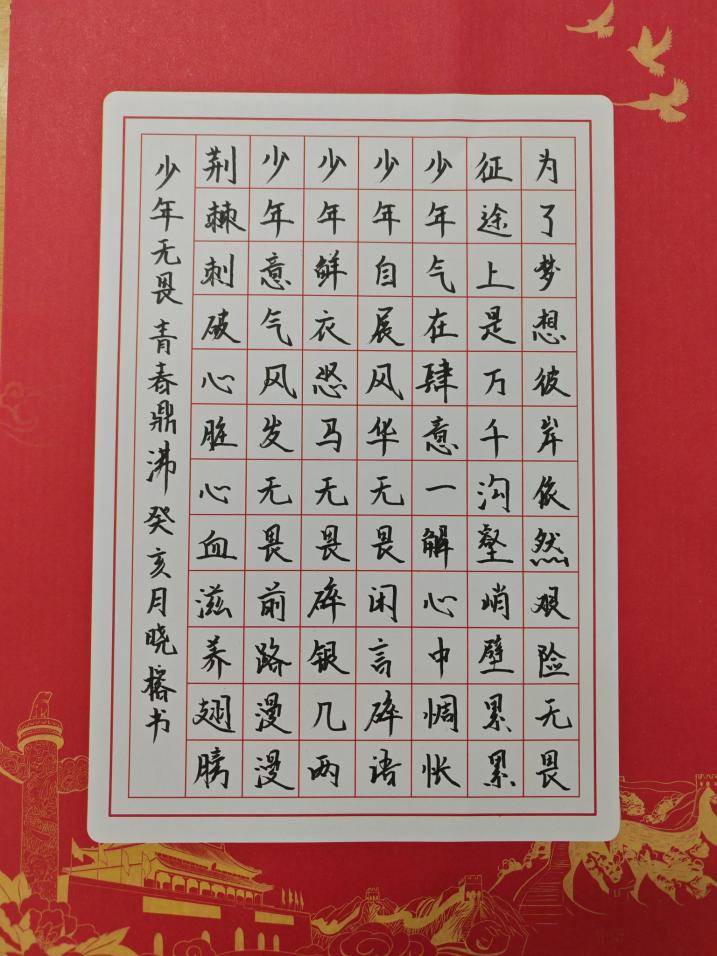 为了梦想彼岸依然艰险无畏
征途上是万千沟壑峭壁累累
少年气在肆意一解心中惆怅
少年自展风华无畏闲言碎语
少年鲜衣怒马无畏碎银几两
少年意气风发无畏前路漫漫
荆棘刺破心脏心血滋养翅膀
少年无畏 青春鼎沸 癸亥月晓榕书